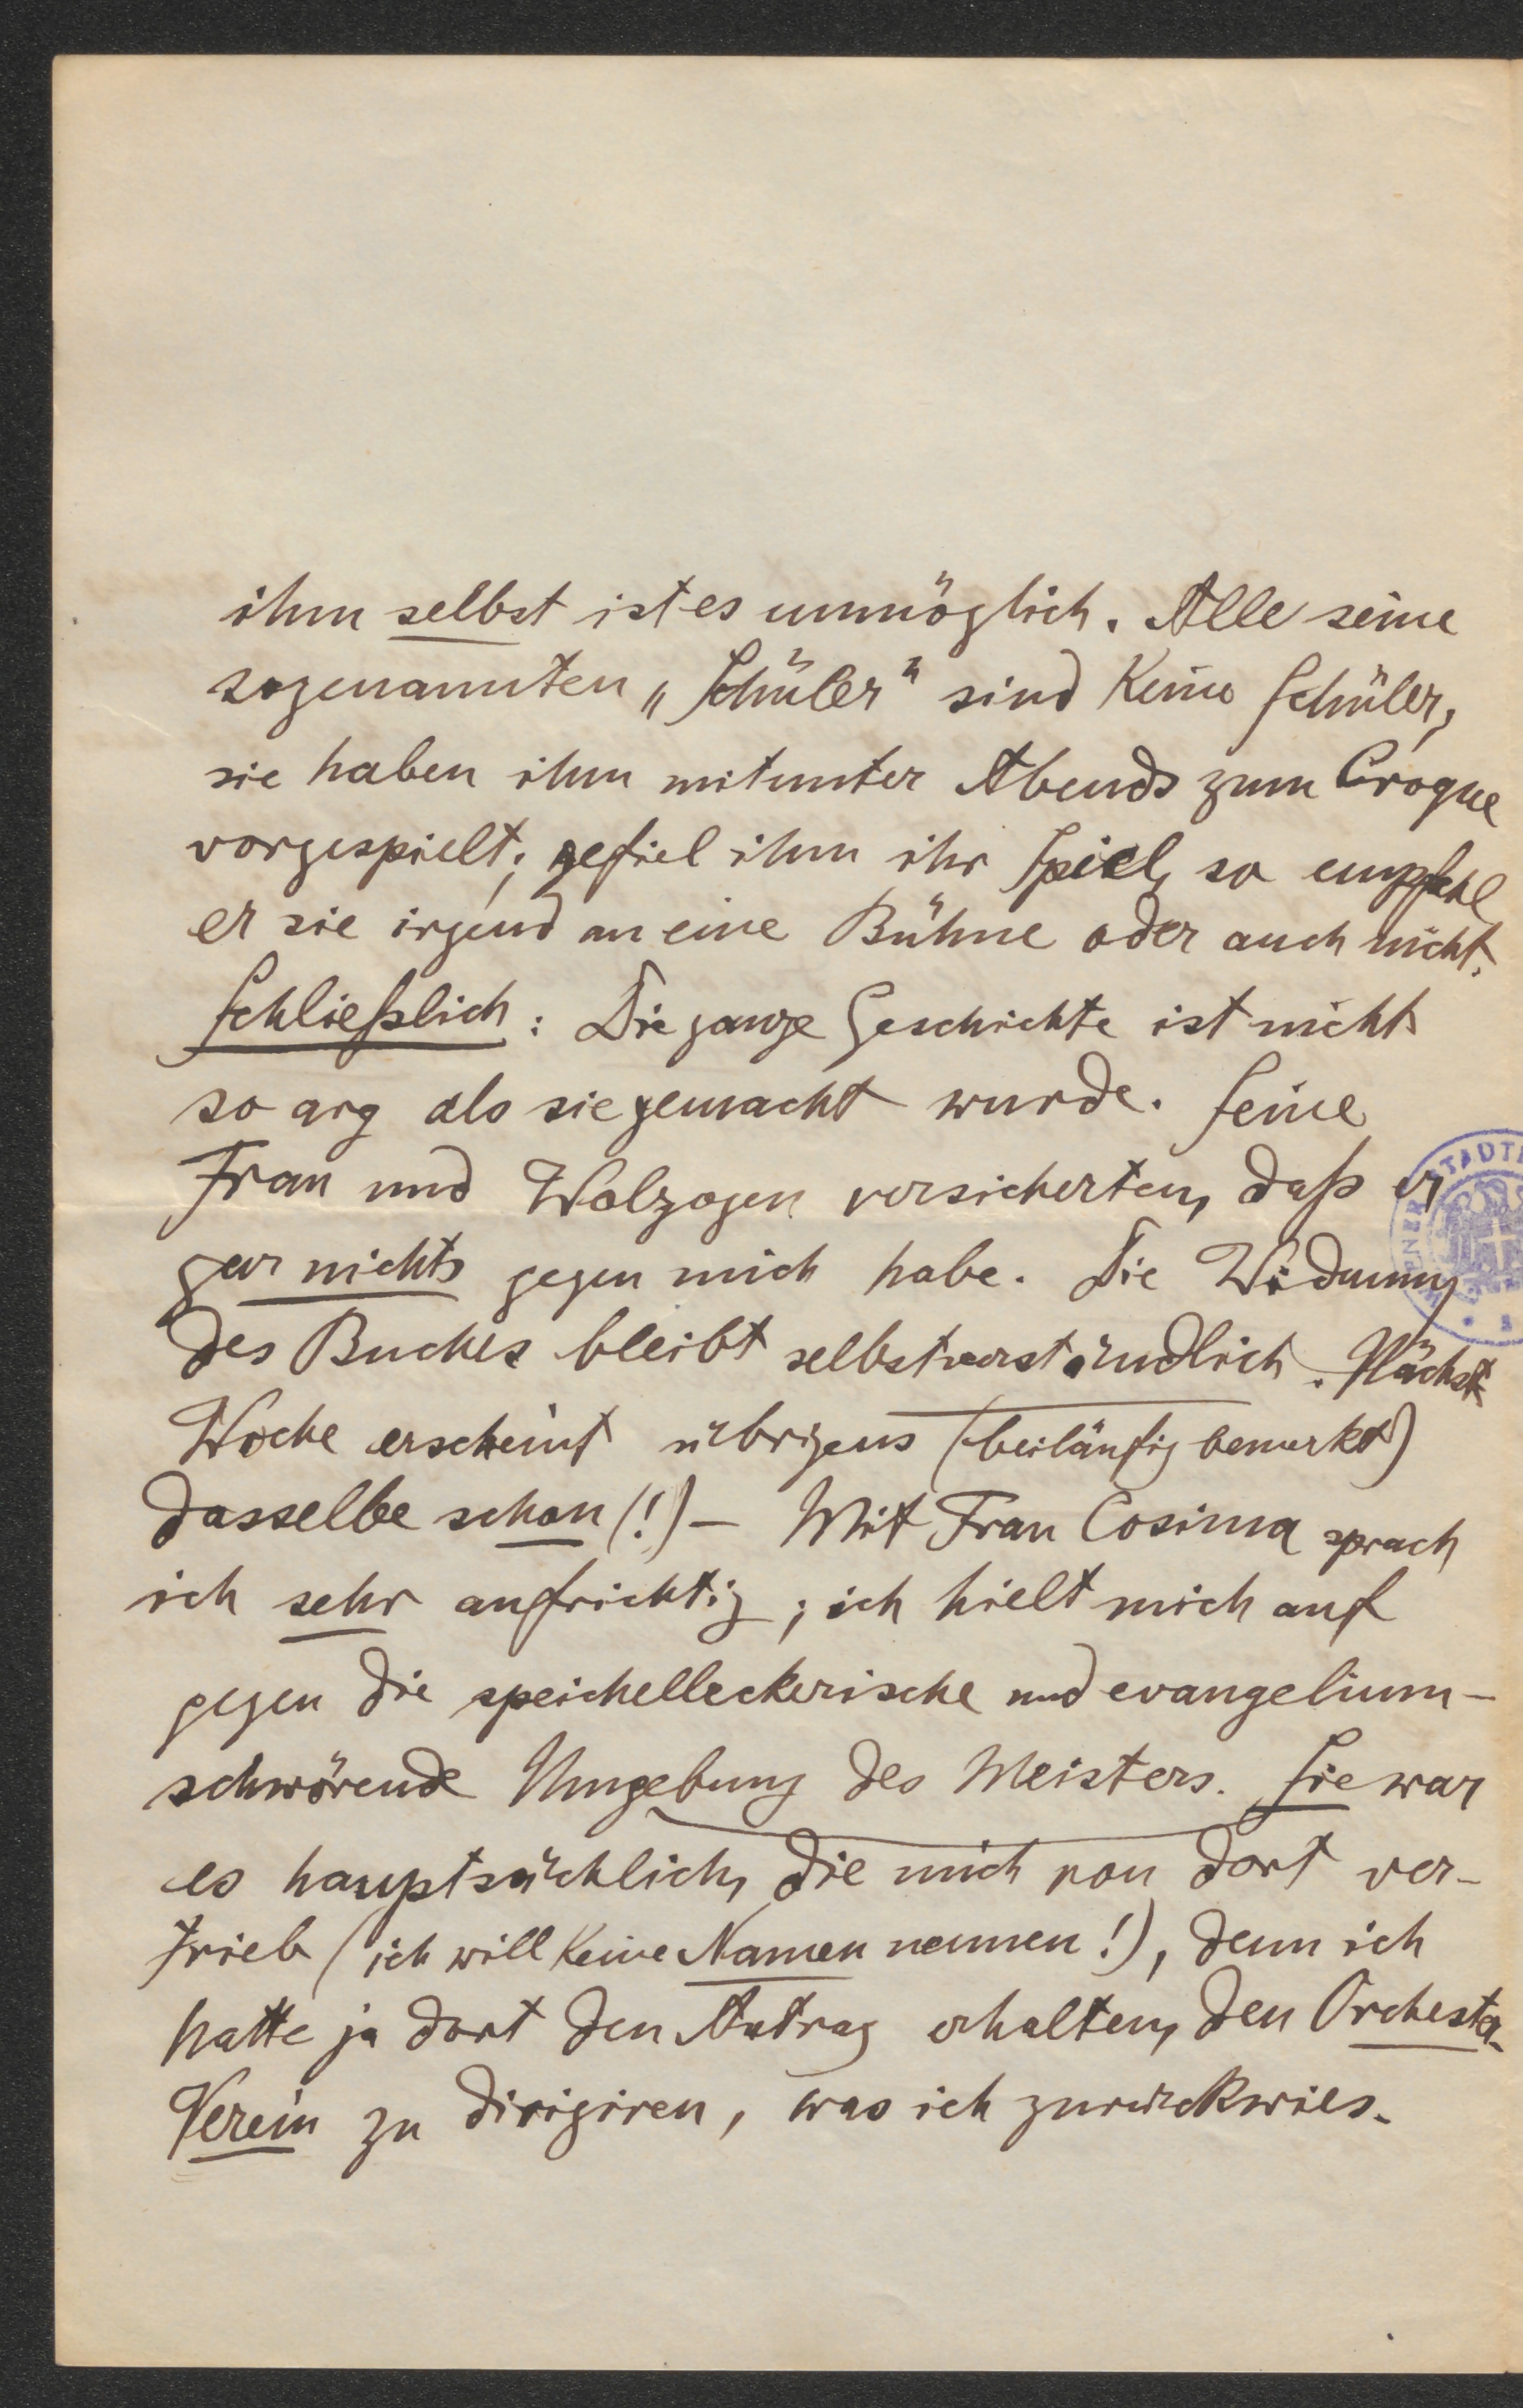 ihm selbst ist es unmöglich. Alle seine
sogenannten „Schüler“ sind keine Schüler,
sie haben ihm mitunter Abends zum Croque
vorgespielt; gefiel ihm ihr Spiel, so empfehl
er sie irgend an eine Bühne oder auch nicht.
Schließlich: Die ganze Geschichte ist nicht
so arg als sie gemacht wurde. Seine
Frau und Wolzogen versicherten, daß er
gar nichts gegen mich habe. Die Widmung
des Buches bleibt selbstverständlich. Nächste
Woche erscheint übrigens (beiläufig bemerkt)
dasselbe schon (!) – Mit Frau Cosima sprach
ich sehr aufrichtig; ich hielt mich auf
gegen die speichelleckerische und evangelium-
schwörende Umgebung des Meisters. Sie war
es hauptsächlich, die mich von dort ver-
trieb (ich will keine Namen nennen!), denn ich
hatte ja dort den Antrag erhalten, den Orchester-
Verein zu dirigiren, was ich zurückwies.
WIENER STADT